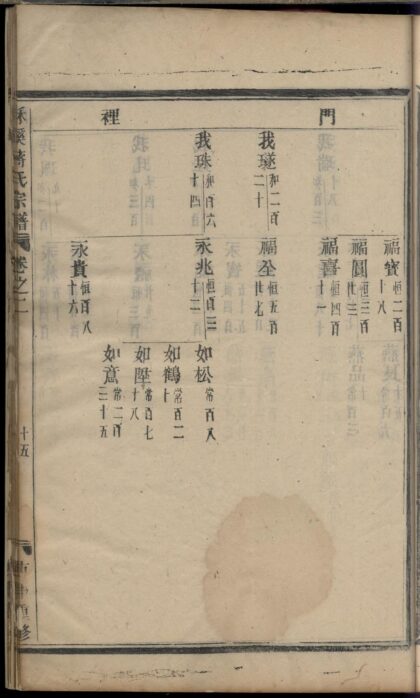 門裡
福寳 恒二百十八
福圓 恒三百廿三
福喜 恒四百十八
我璲 和二百二十
福全 恒五百廿七
我珠 和百六十四
永兆 恒百三十二
如松 常百八
如鶴 常百二十
如陞 常百七十八
如意 常二百三十五
永貴 恒百八十六
氏宗譜
卷之二
十五
重修